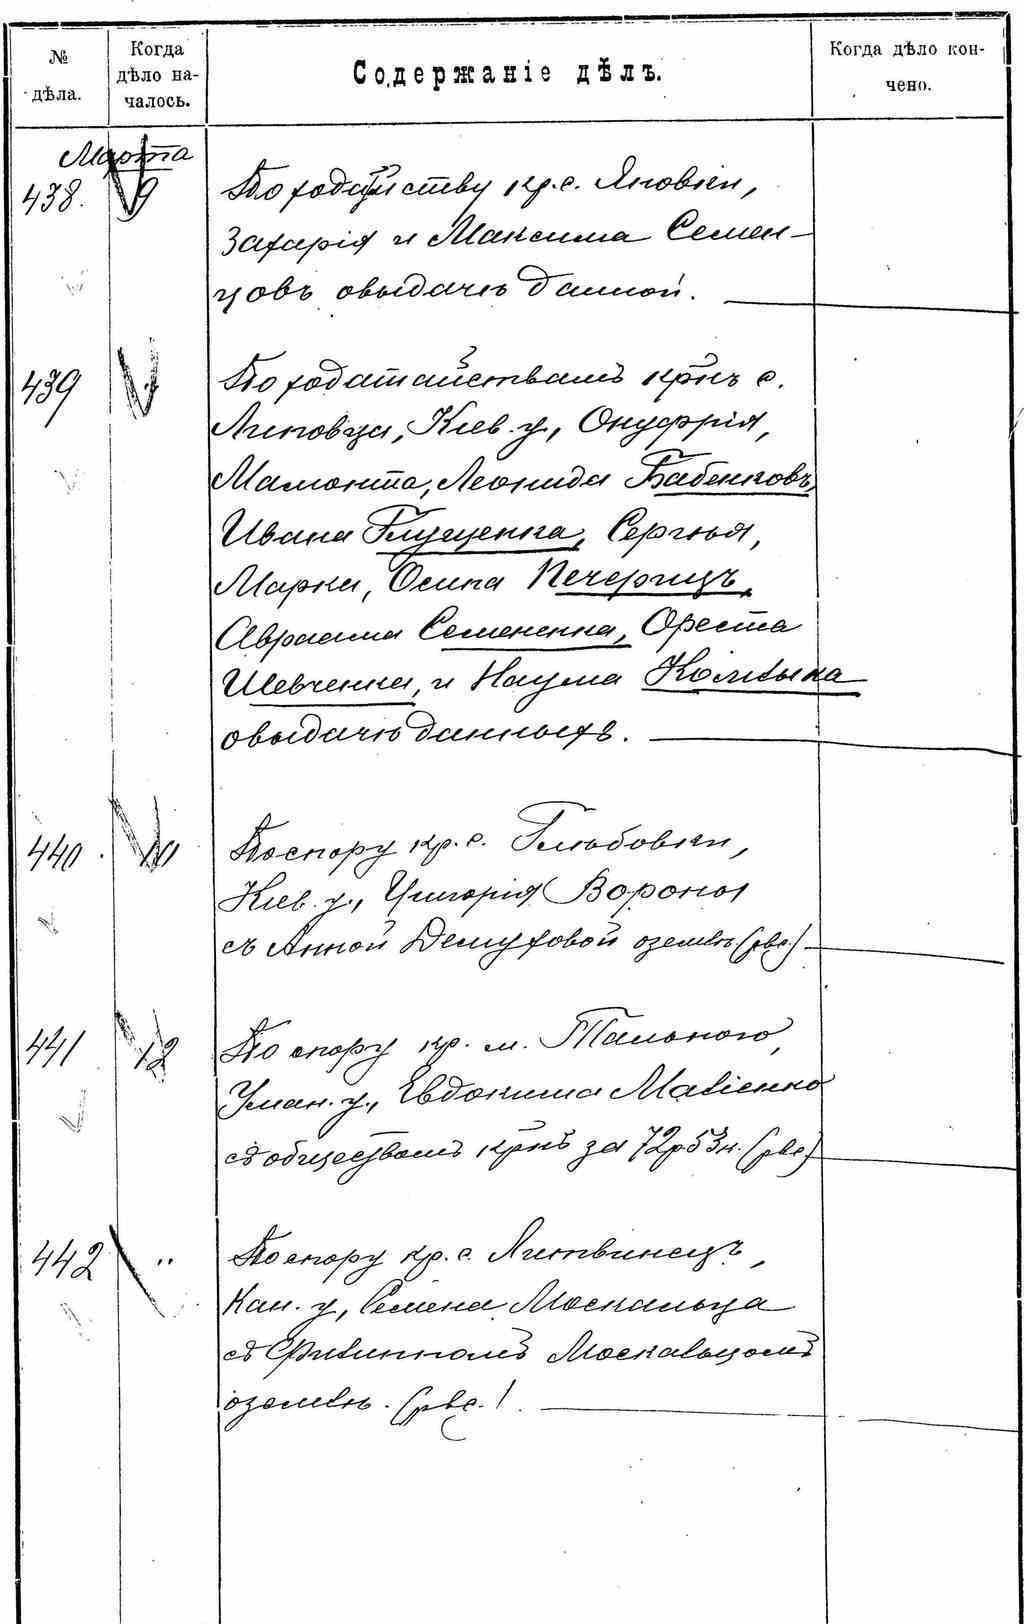 № дѣла.
Когда дѣло на-
чалось.
Содержаніе дѣлъ.
Когда дѣло кон-
чено.
Марта
438. 9 По ходатайству кр. с. Яновки,
Захарія и Максима Семен-
цовъ о выдачѣ данной.
439 По ходатайствамъ крнъ с.
Липовца, Кіев. у., Онуфрія,
Мамонта, Леонида Бабенковъ,
Ивана Глущенка, Сергѣя,
Марка, Осипа Печерицъ,
Авраама Семененка, Ореста
Шевченка, и Наума Колтыка
о выдачѣ данныхъ.
440. 10 По спору кр. с. Глѣбовки,
Кіев. у., Григорія Вороны
съ Анной Демуховой о землѣ (рвс.)
441 12 По спору кр. м. Тального,
Уман. у., Евдокима Матіенко
съ обществомъ крнъ за 72 р 53 к. (рвс.)
442 " По спору кр. с. Литвинецъ,
Кан. у., Семена Москальца
съ Филиппомъ Москальцомъ
о землѣ. (рвс.)